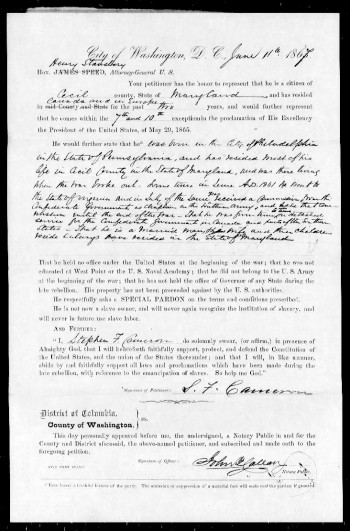 City of Washington, D. C., June 11th 1867
Henry Stansbery
Hon. JAMES SPEED, Attorney-General U. S.
Your petitioner has the honor to represent that he is a citizen of
Cecil county, State of Maryland, and has resided
Canada and in Europe two
in said County and State for the past years, and would further represent
that he comes within the 7th and 10th exceptions to the proclamation of His Excellency
the President of the United States, of May 29, 1865.
He would further state that he was born in the City of Philadelphia
in the State of Pennsylvania, and has resided most of his
life in Cecil County in the State of Maryland, and was there living
when the war broke out. Some time in June A.D. 1861 he went to
the State of Virginia and in July of the same year received a Commission from the
Confederate Government as Chaplain in the Army, and
until the end of the war. That he was
service for the Confederate Government in Canada and
States - That he is a married man his wife and children
reside and have resided in the State of Maryland
That he held no office under the United States at the beginning of the war; that he was not
educated at West Point or the U. S. Naval Academy; that he did not belong to the U. S. Army
at the beginning of the war; that he has not held the office of Governor of any State during the
late rebellion. His property has not been proceeded against by the U. S. authorities.
He respectfully asks a SPECIAL PARDON on the terms and conditions prescribed.
He is not now a slave owner, and will never again recognize the institution of slavery, and
will never in future use slave labor.
AND FURTHER:
"I, Stephen F. Cameron do solemnly swear, (or affirm,) in presence of
Almighty God, that I will henceforth faithfully support, protect, and defend the Constitution of
the United States, and the union of the States thereunder; and that I will, in like manner,
abide by and faithfully support all laws and proclamations which have been made during the
late rebellion, with reference to the emancipation of slaves. So help me God."
Signature of Petitioner: S. F. Cameron
District of Columbia,
County of Washington. } ss.
This day personally appeared before me, the undersigned, a Notary Public in and for the
County and District aforesaid, the above-named petitioner, and subscribed and made oath to the
foregoing petition.
Signature of Officer: John
Notary Public